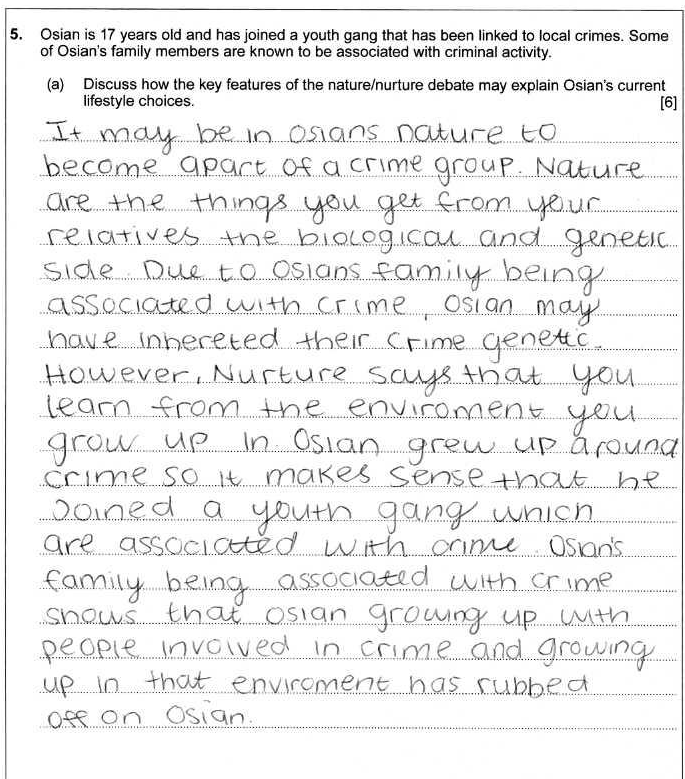 5. Osian is 17 years old and has joined a youth gang that has been linked to local crimes. Some
of Osian's family members are known to be associated with criminal activity.
(a) Discuss how the key features of the nature/nurture debate may explain Osian's current
lifestyle choices. [6]
It may be in osians nature to
become apart of a crime group. Nature
are the things you get from your
relatives the biological and genetic
side. Due to Osians family being
associated with crime, Osian may
have inhereted their crime genetic.
However, Nurture says that you
learn from the enviroment you
grow up in. Osian grew up around
crime so it makes sense that he
Joined a youth gang which
are associated with crime. Osian's
family being associated with crime
shows that osian growing up with
people involved in crime and growing
up in that enviroment has rubbed
off on Osian.